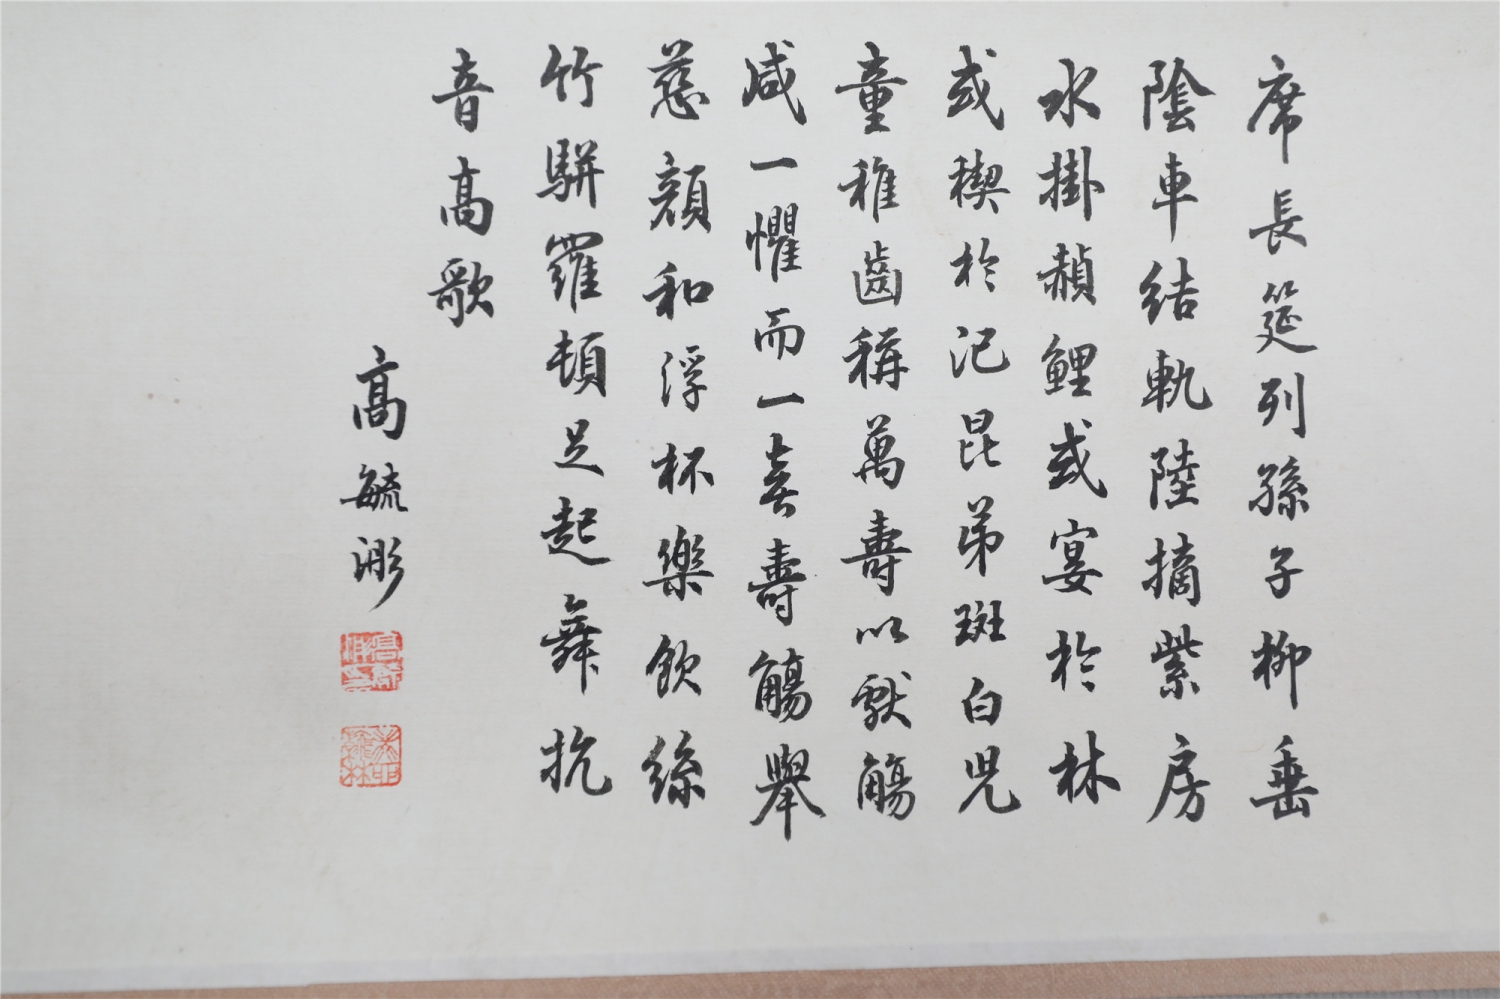 席長筵列孫子柳垂
陰車結軌陸摘紫房
水掛赬鯉或宴於林
或禊於汜昆弟斑白兒
童稚齒稱萬壽以獻觴
咸一懼而一喜壽觴舉
慈顏和浮杯樂飲絲
竹駢羅頓足起舞抗
音高歌
高毓浵